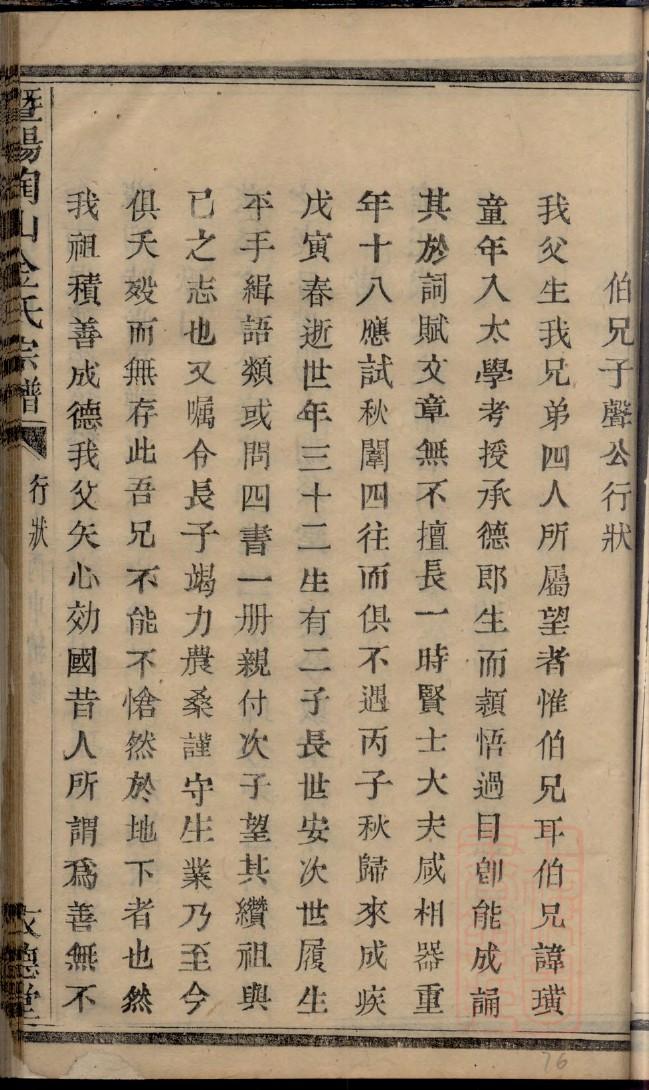 伯兄子聲公行狀
我父生我兄弟四人所屬望者惟伯兄耳伯兄諱璜
童年入太學考授承德郎生而穎悟過目卽能成誦
其於詞賦文章無不擅長一時賢士大夫咸相器重
年十八應試秋闈四往而俱不遇丙子秋歸來成疾
戊寅春逝世年三十二生有二子長世安次世履生
平手緝語類或問四書一册親付次子望其纘祖與
己之志也又嘱令長子竭力農桑謹守生業乃至今
俱夭歿而無存此吾兄不能不愴然於地下者也然
我祖積善成德我父矢心効國昔人所謂爲善無不
暨陽陶山金氏宗譜
行狀
文德堂
76